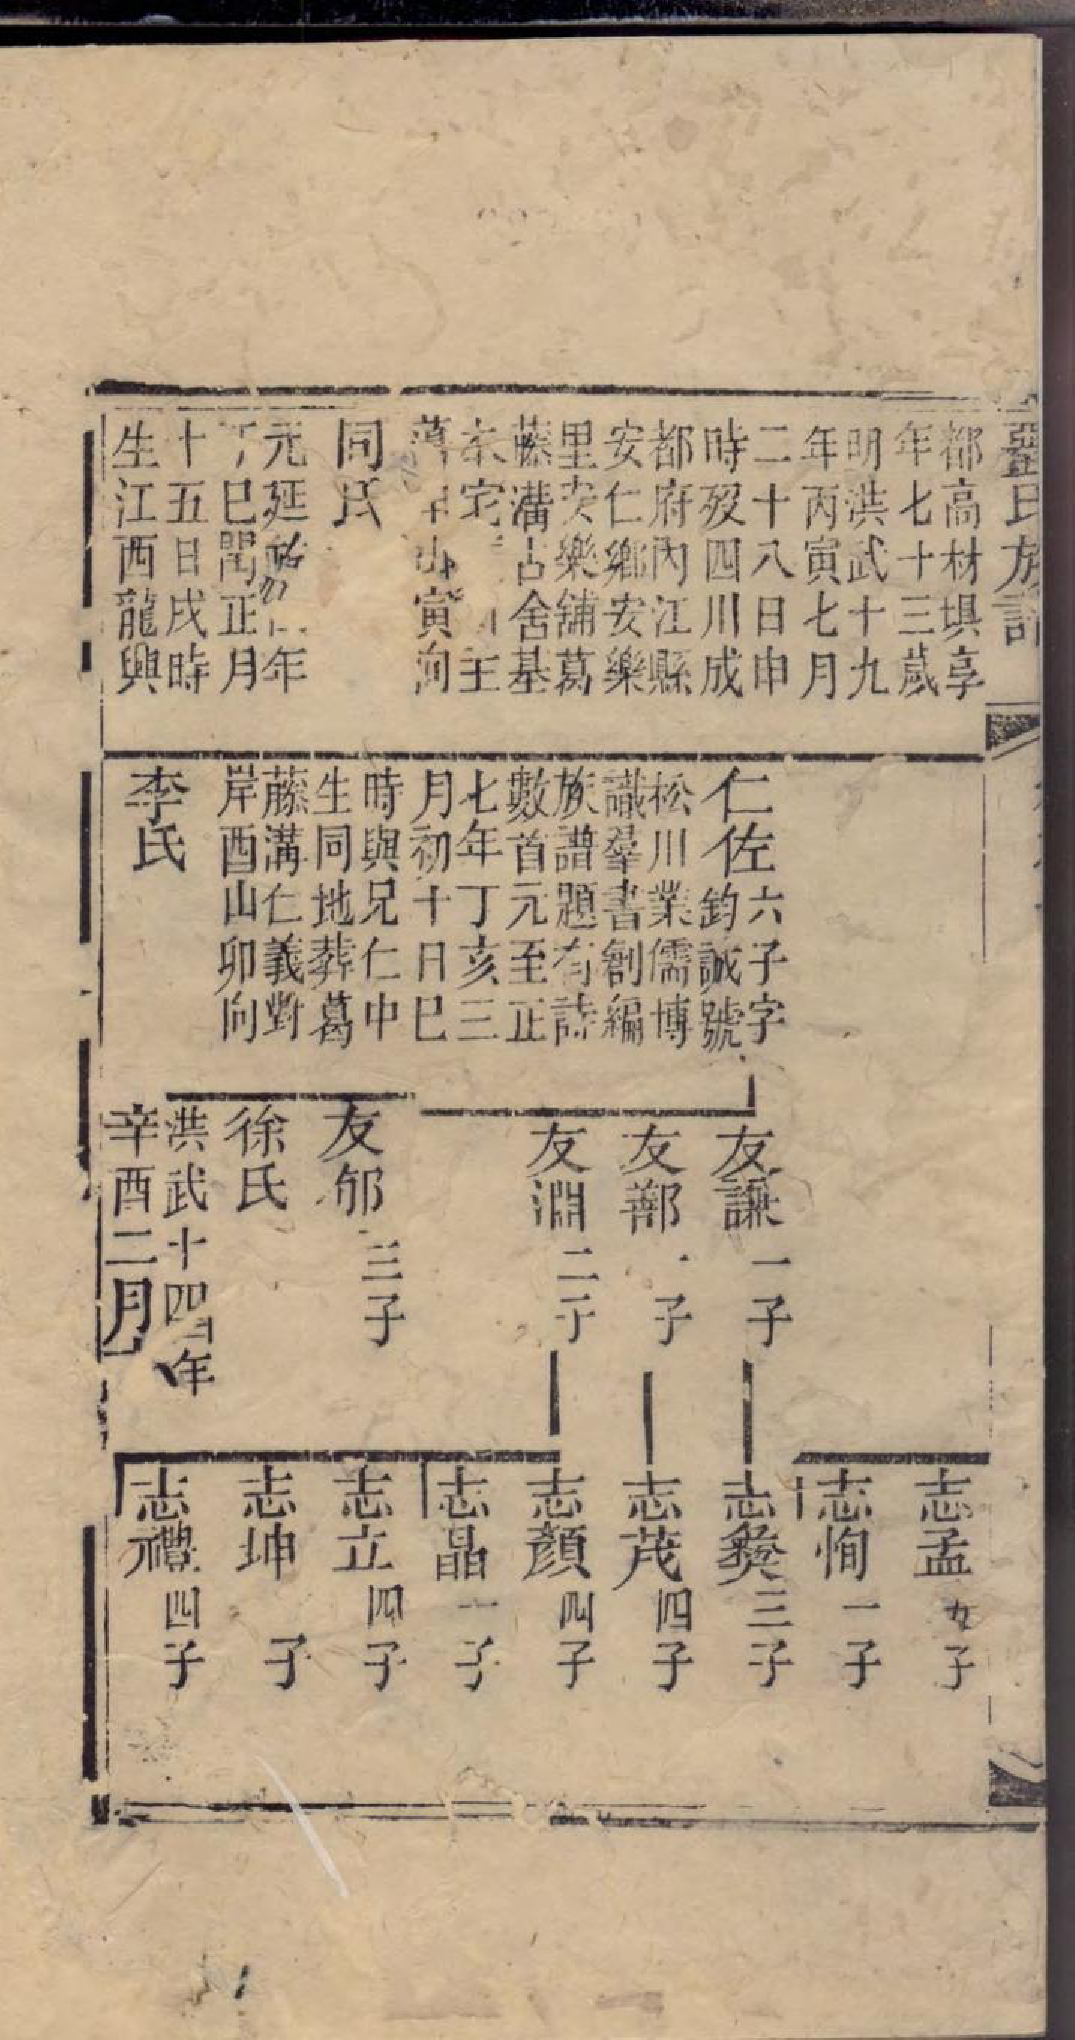 氏族
都高材俱享
年七十三歲
明洪武十九
年丙寅七月
二十八日申
時歿四川成
都府內江縣
安仁鄉安樂
里安樂鋪葛
藤溝占舍基
宅 主
寅向
同氏
元延祐 年
丁巳閏正月
十五日戌時
生江西龍興
仁佐六子字
鈞誠號
松川業儒博
識羣書創編
族譜題有詩
數首元至正
七年丁亥三
月初十日巳
時與兄仁中
生同地葬葛
藤溝仁義對
岸酉山卯向
李氏
友謙一子
友鄯 子
友淵二子
友郇三子
徐氏
洪武十四年
辛酉二月
志孟九子
志恂一子
志彝三子
志茂四子
志顏四子
志晶一子
志立四子
志坤 子
志禮四子